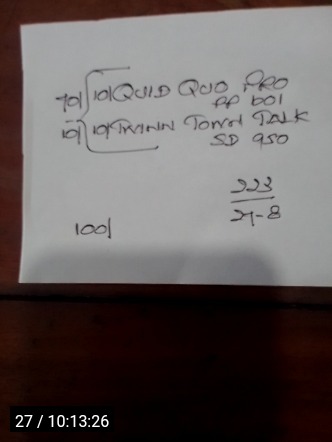 70/ 10/ QUID QUO PRO
PP 1001
10/ 10/ TWINN TOWN TALK
SD 950
223
27-8
100/
27 / 10:13:26